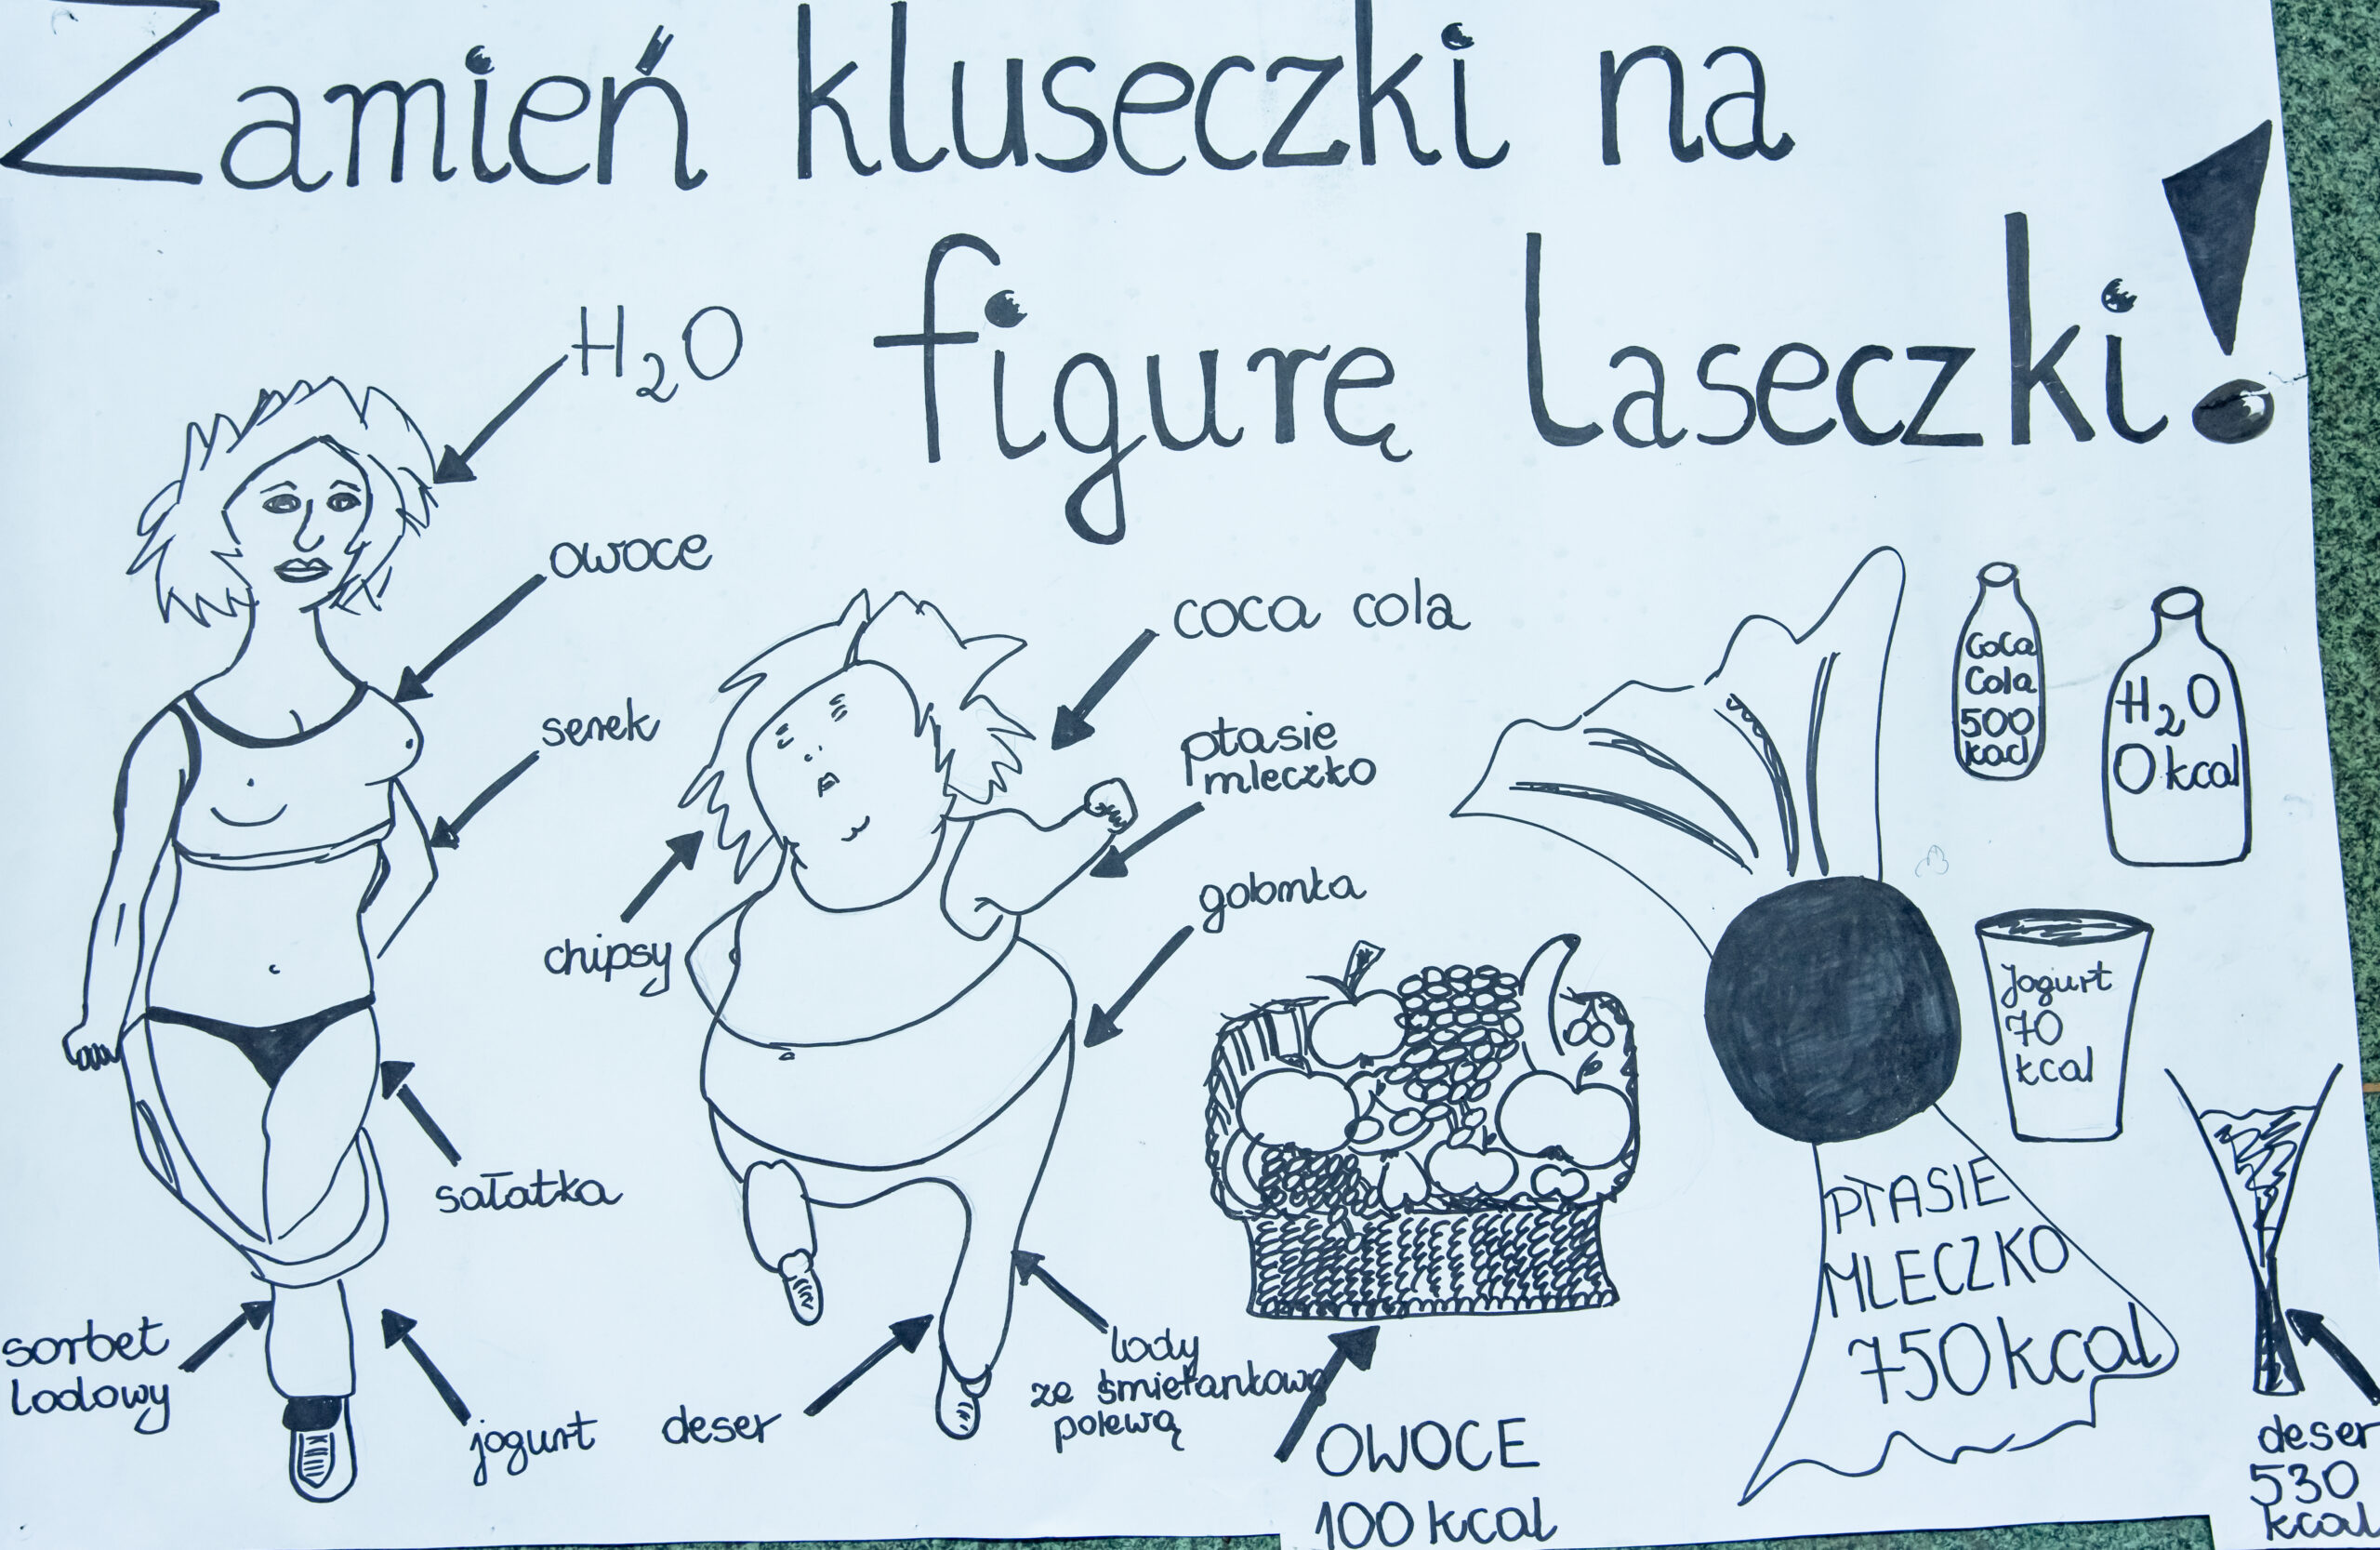 Zamień kluseczki na
figurę laseczki!
H₂O
owoce
serek
sałatka
sorbet
lodowy
jogurt
coca cola
ptasie
mleczko
golonka
chipsy
deser
lody
ze śmietankową
polewą
OWOCE
100 kcal
PTASIE
MLECZKO
750 kcal
Coca
Cola
500
kcal
H₂O
0 kcal
Jogurt
70
kcal
deser
530
kcal